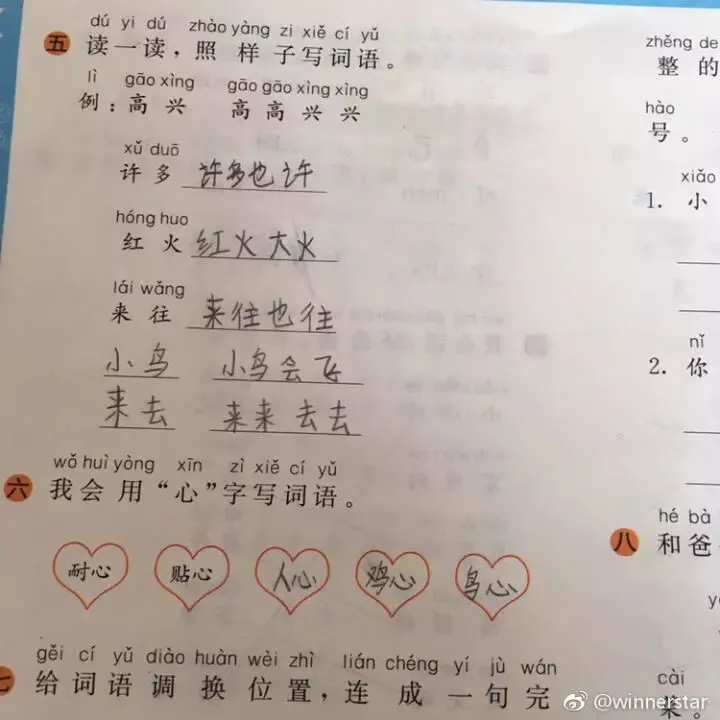 dú yi dú zhào yàng zi xiě cí yǔ
五 读一读，照样子写词语。
lì gāo xìng gāo gāo xìng xìng
例：高兴 高高兴兴
xǔ duō
许多 许多也许
hóng huo
红火 红火大火
lái wǎng
来往 来往也往
小鸟 小鸟会飞
来去 来来去去
wǒ huì yòng xīn zì xiě cí yǔ
六 我会用“心”字写词语。
耐心 贴心 人心 鸡心 鸟心
gěi cí yǔ diào huàn wèi zhì lián chéng yí jù wán
七 给词语调换位置，连成一句完
zhěng de
整的
hào
号。
xiǎo
1. 小
nǐ
2. 你
hé bà
八 和爸
cài
菜。
@winnerstar